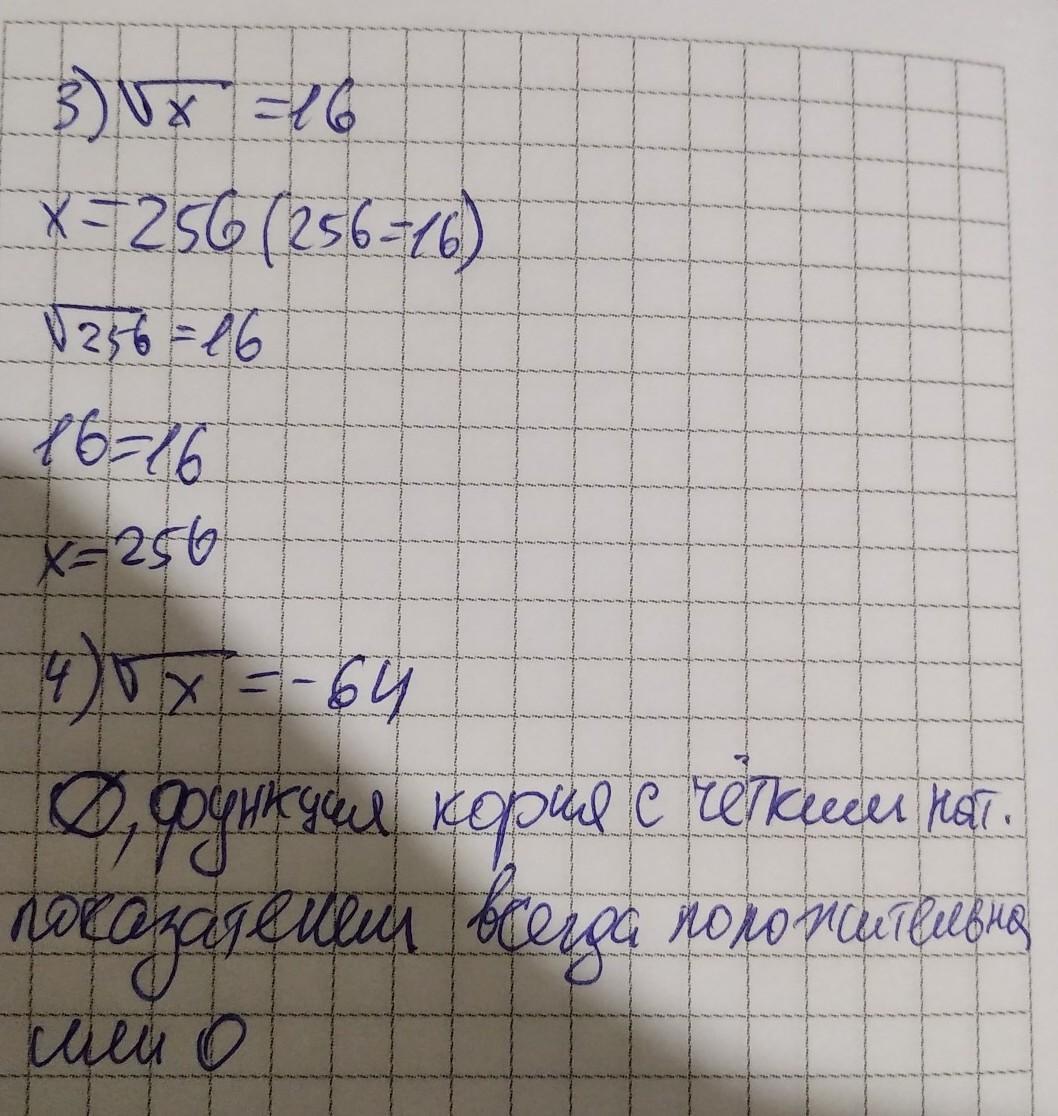 3) √x = 16
x = 256 (256 = 16)
√256 = 16
16 = 16
x = 256
4) √x = -64
∅, функция корня с чётким нат.
показателем всегда положительна
или 0